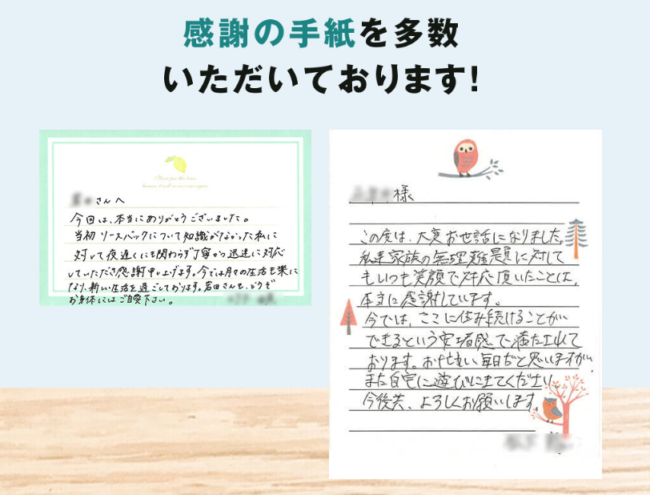 感謝の手紙を多数
いただいております!
さんへ
今回は、本当にありがとうございました。
当初 リースバックについて知識がなかった私に
対して夜遅くにも関わらず丁寧かつ迅速に対応
していただき感謝申し上げます。今では月々の生活も楽に
なり、新しい生活を過ごしております。岩田さんも、どうぞ
お身体にはご自愛下さい。
様
この度は、大変お世話になりました。
私達家族の無理難題に対して
もいつも笑顔で対応頂いたことは、
本当に感謝しています。
今では、ここに住み続けることが
できるという安堵感で満たされて
おります。お忙しい毎日だと思いますが、
また自宅に遊びにきてください。
今後共、よろしくお願いします。